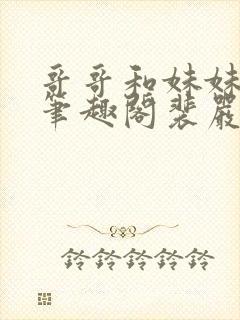 哥哥和妹妹
笔趣阁裴嚴
铃铃铃铃铃